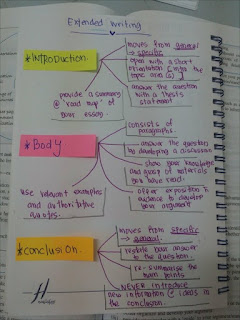 Extended Writing
*INTRODUCTION.
moves from general
→ specific
open with a short
orientation [
topic and (s) ]
answer the question
with a thesis
statement
provide a summary
@ 'road map' of
your essay.
*Body
consists of
paragraphs.
answer the question
by developing a discussion
show your knowledge
and grasp of materials
you have read.
offer exposition n
evidence to develop
your argument
use relevant examples
and authoritative
quotes.
*CONCLUSION.
moves from specific
general.
restate your answer
to the question.
re-summarise the
main points
NEVER introduce
new information @ ideas in
the conclusion